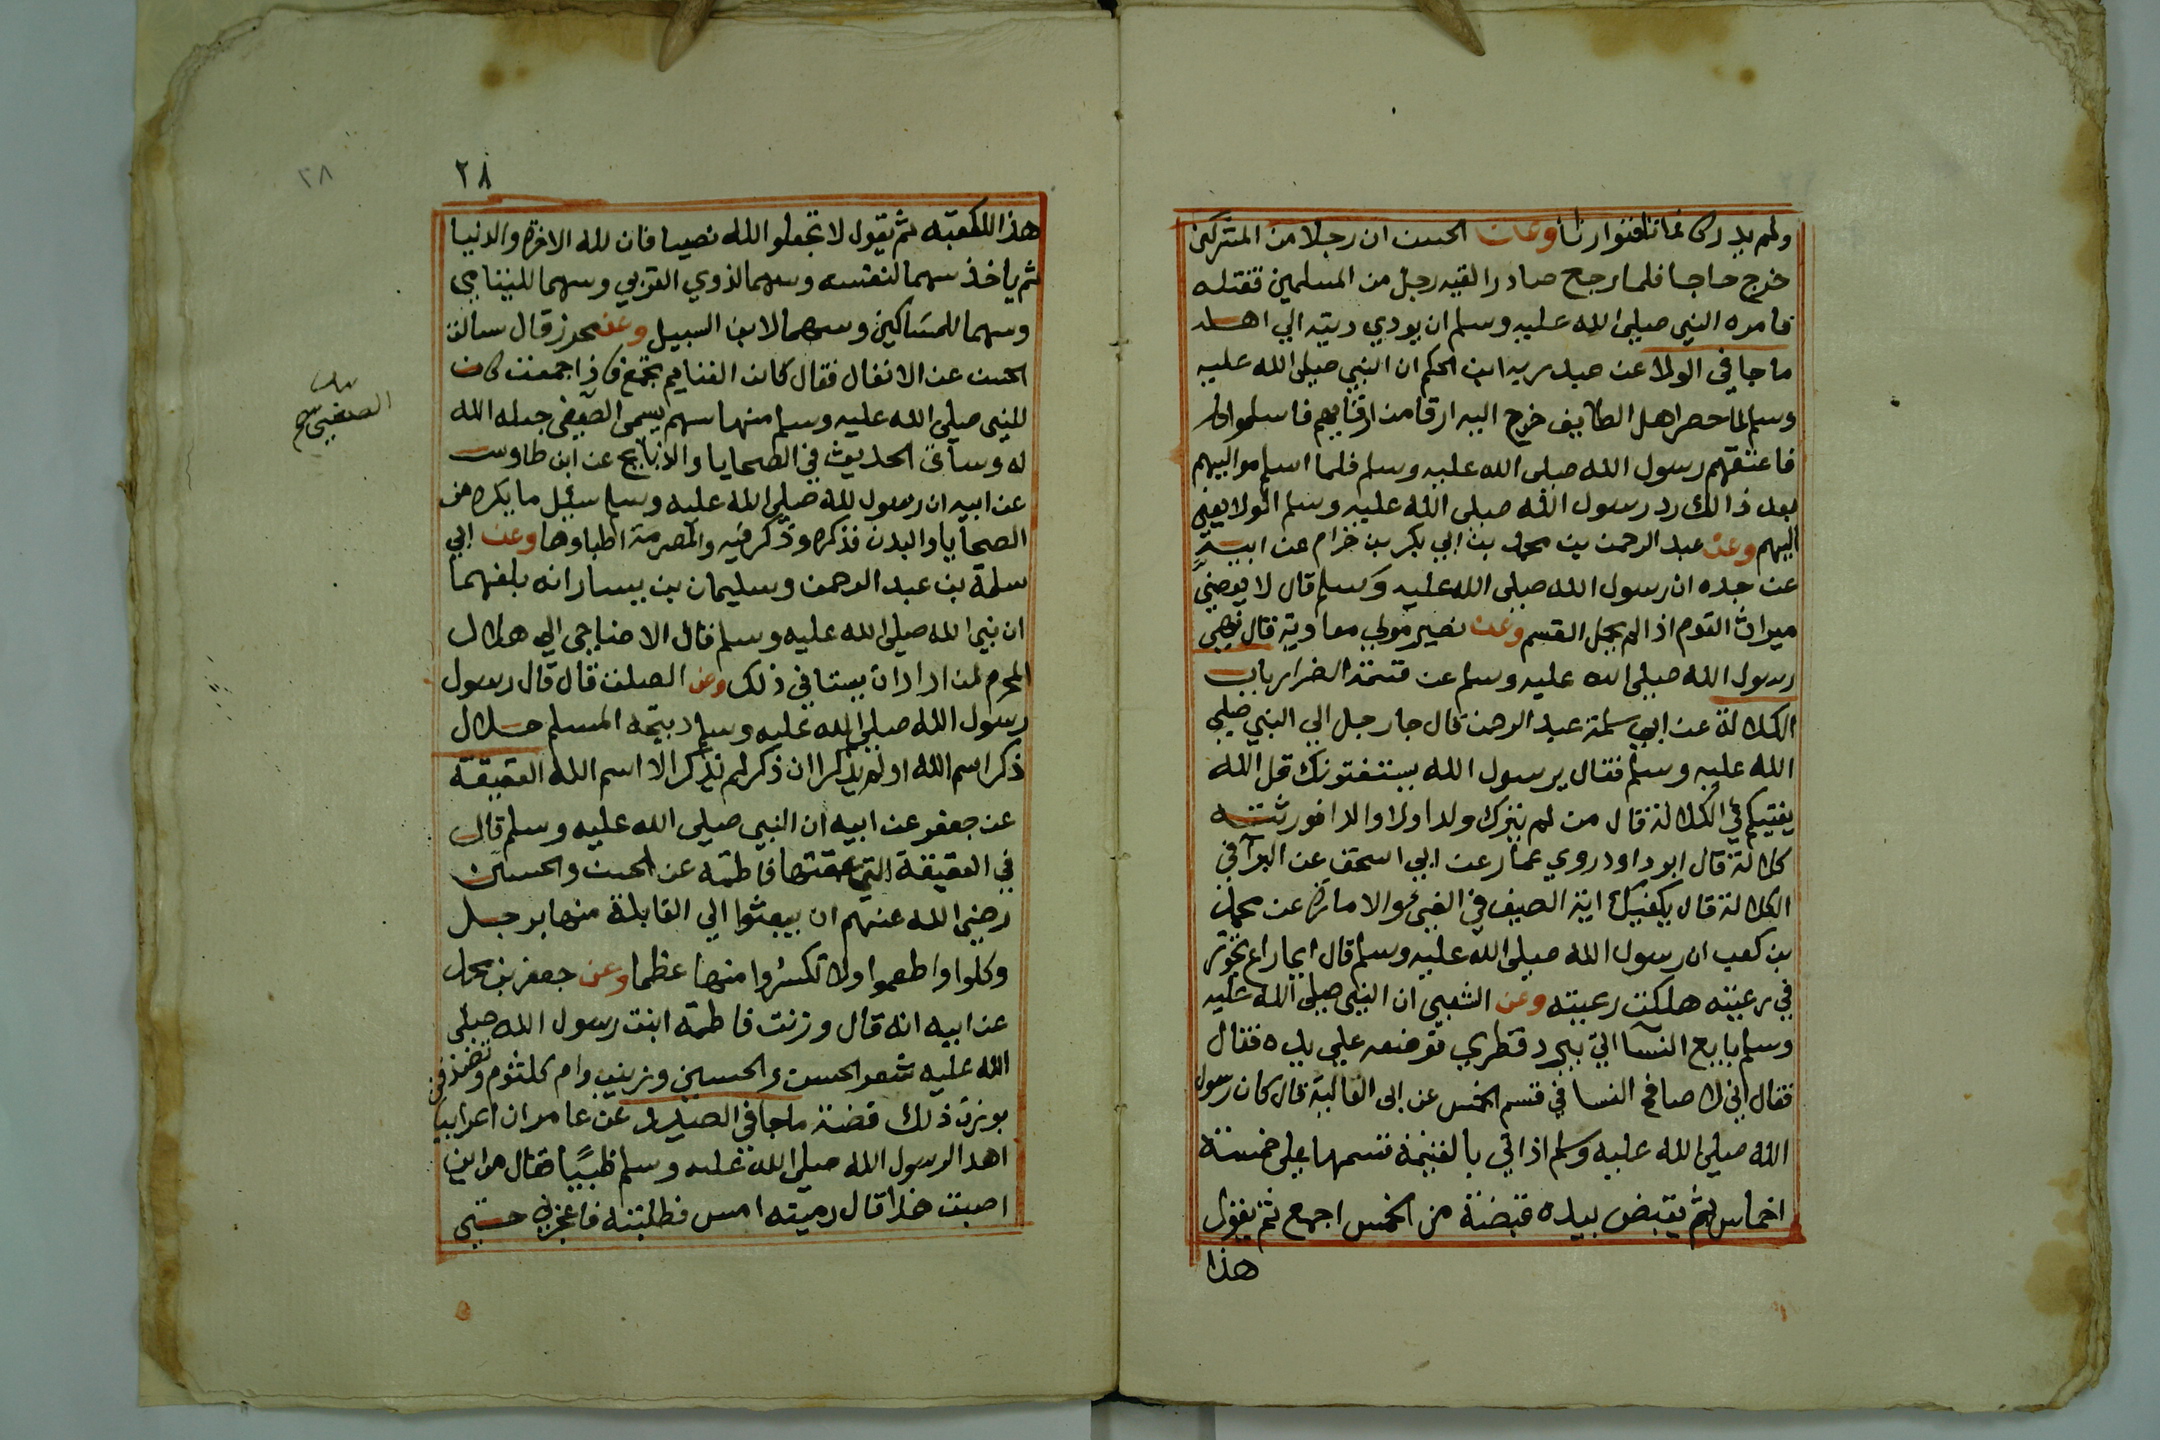 ولم يدركا غماتا فتوارثا وعن الحسن ان رجلا من المشركين
خرج حاجا فلما رجع صادرا لقيه رجل من المسلمين فقتله
فامره النبي صلى الله عليه وسلم ان يودي ديته الي اهله
ما جا في الولا عن عبد ربه ابن الحكم ان النبي صلى الله عليه
وسلم لما حصر اهل الطايف خرج اليه ارقا من ارقايهم فاسلموا
فاعتقهم رسول الله صلى الله عليه وسلم فلما اسلم مواليهم
بعد ذالك رد رسول الله صلى الله عليه وسلم الولا يعني
اليهم وعن عبد الرحمن بن محمد بن ابي بكر بن خرام عن ابيه
عن جده ان رسول الله صلى الله عليه وسلم قال لا يعضي
ميراث القوم اذا لم يحمل القسم وعن نصير مولي معاوية قال نهي
رسول الله صلى الله عليه وسلم عن قسمة الضرار باب
الكلالة عن ابي سلمة عبد الرحمن قال جا رجل الي النبي صلي
الله عليه وسلم فقال يرسول الله يستفتونك قل الله
يفتيكم في الكلالة قال من لم يترك ولدا ولا والدا فورثته
كلالة قال ابو داود روي عمار عن ابي اسحق عن البرآ في
الكلالة قال يكفيك اية الصيف في الفيء والامارة عن محمد
بن كعب ان رسول الله صلى الله عليه وسلم قال ايما راع
في رعيته هلكت رعيته وعن الشعبي ان النبي صلى الله عليه
وسلم بايع النسآ اتي ببرد قطري فوضعه علي يده فقال
فقال اني لا صافح النسا في قسم الخمس عن ابي العالية قال كان رسول
الله صلى الله عليه وسلم اذا اتي بالغنيمة قسمها علي خمسة
اخماس ثم يقبض بيده قبضة من الخمس اجمع ثم يقول
هذا
٢٨
٢٨
هذا للكعبة ثم يقول لا تجعلوا لله نصيبا فان لله الاخرة والدنيا
ثم ياخذ سهما لنفسه وسهما لذوي القربي وسهما لليتامي
وسهما للمساكين وسهما لابن السبيل وعن محرز قال سالت
الحسن عن الانفال فقال كانت الغنايم تجمع فاذا جمعت كان
للنبي صلى الله عليه وسلم منها سهم يسمى الصيفى جعله الله
له وساتي الحديث في الضحايا والذبايح عن ابن طاوس
عن ابيه ان رسول لله صلى الله عليه وسلم سئيل ما يكره من
الضحايا والبدن فذكره وذكر فيه والمصرمة اطباوها وعن ابي
سلمة بن عبد الرحمن وسليمان بن يسار انه بلغهما
ان نبي الله صلى الله عليه وسلم قال الاضاحي الي هلال
المحرم لمن اراد ان يستاني ذلك وعن الصلت قال قال رسول
رسول الله صلى الله عليه وسلم ذبيحة المسلم حلال
ذكر اسم الله او لم يذكر ان ذكر لم يذكر الا اسم الله العقيقة
عن جعفر عن ابيه ان النبي صلى الله عليه وسلم قال
في العقيقة التي عقتها فاطمة عن الحسن والحسين
رضي الله عنهم ان يبعثوا الي القابلة منها برجل
وكلوا واطعموا ولا تكسروا منها عظما وعن جعفر بن محمد
عن ابيه انه قال وزنت فاطمة ابنت رسول الله صلى
الله عليه شعر الحسن والحسين وزينب وام كلثوم
بوزن ذلك فضة ما جا في الصيد وعن عامر ان اعرابيا
اهدا لرسول الله صلى الله عليه وسلم ظبيًا فقال من اين
اصبت هذا قال رميته امس فطلبته فاعجزني حتي